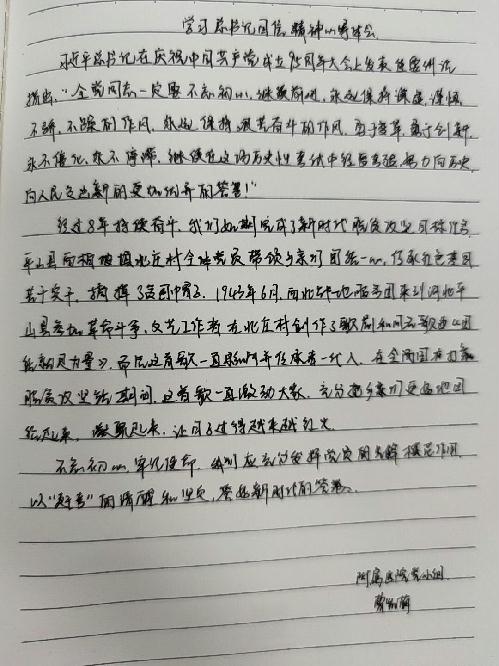 学习总书记回信精神心得体会
习近平总书记在庆祝中国共产党成立95周年大会上发表重要讲话
指出:"全党同志一定要不忘初心,继续前进,永远保持谦虚、谨慎、
不骄、不躁的作风,永远保持艰苦奋斗的作风,勇于变革、勇于创新
永不僵化、永不停滞,继续在这场历史性考试中经受考验,努力向历史、
向人民交出新的更加优异的答卷!"
经过8年持续奋斗,我们如期完成了新时代脱贫攻坚目标任务
平山县西柏坡镇北庄村全体党员带领乡亲们团结一心,传承红色基因
苦干实干,摘掉了贫困帽子。1943年6月,西北战地服务团来到河北平
山县参加革命斗争,文艺工作者在北庄村创作了歌剧和同名歌曲《团
结就是力量》,而后这首歌一直影响并传承着一代人,在全面打赢
脱贫攻坚战期间,这首歌一直激励大家,充分把乡亲们更好地团
结起来,凝聚起来,让日子过得越来越红火
不忘初心,牢记使命,我们应充分发挥党员的先锋模范作用,
以"赶考"的清醒和坚定,答好新时代的答卷。
附属医院党小组